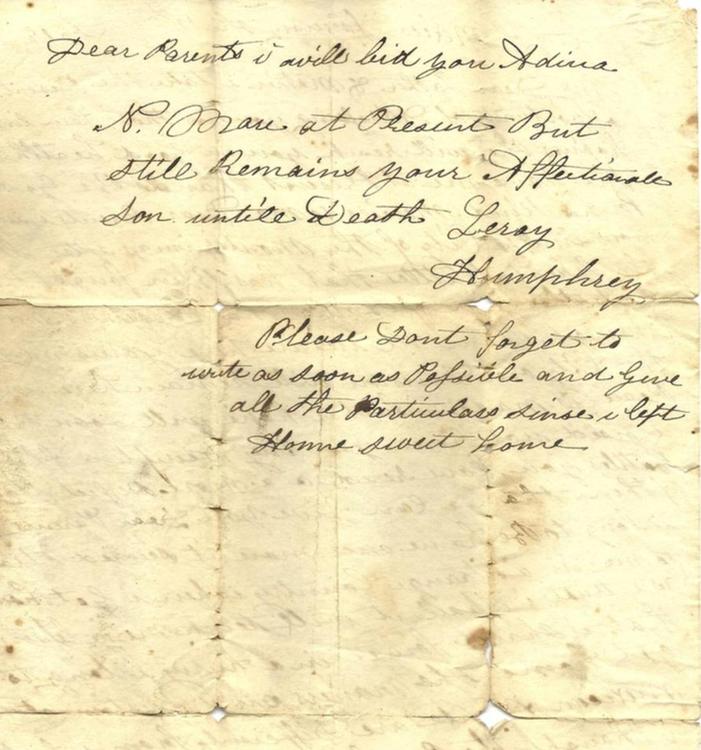 Dear Parents i will bid you Adiua
N. More at Present But
still Remains your Affectionate
Son untile Death Leroy
Humphrey
Please Dont forget to
write as soon as Possible and Give
all the Particulars sinse i left
Home sweet home